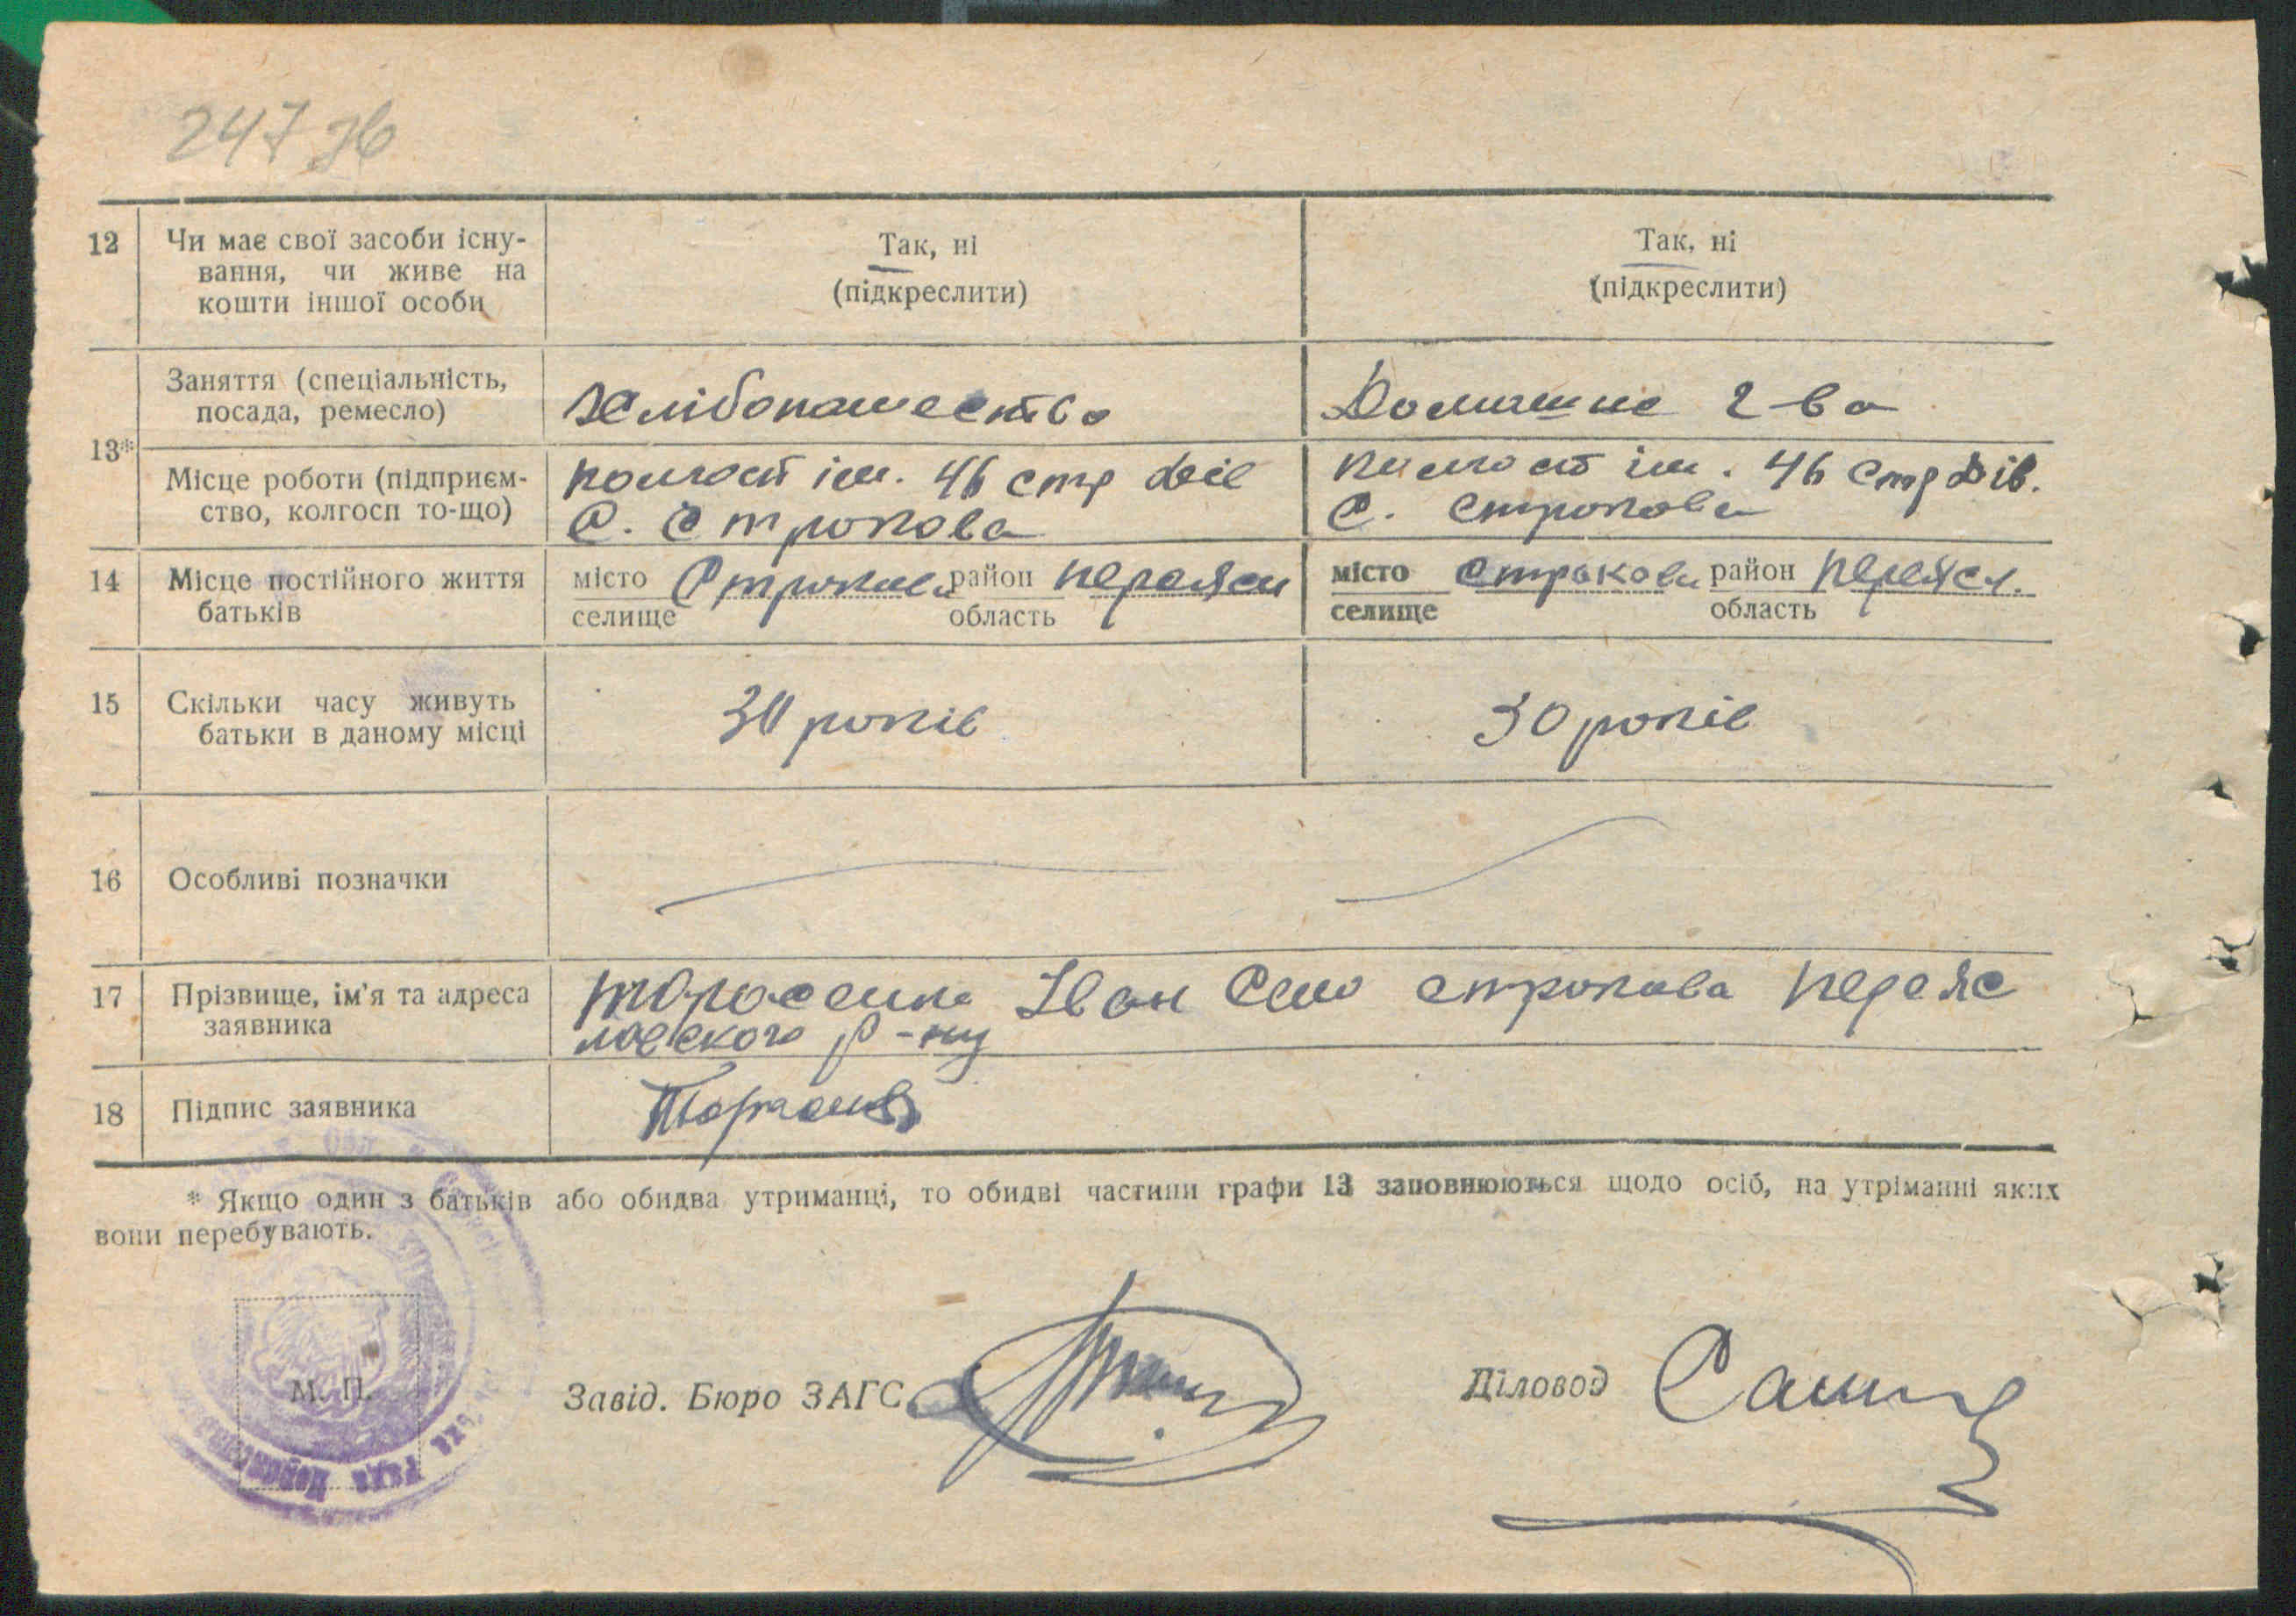 247 зв
12 Чи має свої засоби існу-
вання, чи живе на
кошти іншої особи
Так, ні
(підкреслити)
Так, ні
(підкреслити)
13*
Заняття (спеціальність,
посада, ремесло)
Хлібопашество
Домашнє г-во
Місце роботи (підприєм-
ство, колгосп то-що)
колгосп ім. 46 стр див
С. Строкова
колгосп ім. 46 стр див.
С. Строкова
14 Місце постійного життя
батьків
місто Строкова район Переясл
селище область
місто Строкова район Переясл.
селище область
15 Скільки часу живуть
батьки в даному місці
30 років
30 років
16 Особливі позначки
17 Прізвище, ім'я та адреса
заявника
Іван Село строкова Переяс
лавского р-ну
18 Підпис заявника
* Якщо один з батьків або обидва утриманці, то обидві частини графи 13 заповнюються щодо осіб, на утріманні яких
вони перебувають.
М. П.
Завід. Бюро ЗАГС
Діловод